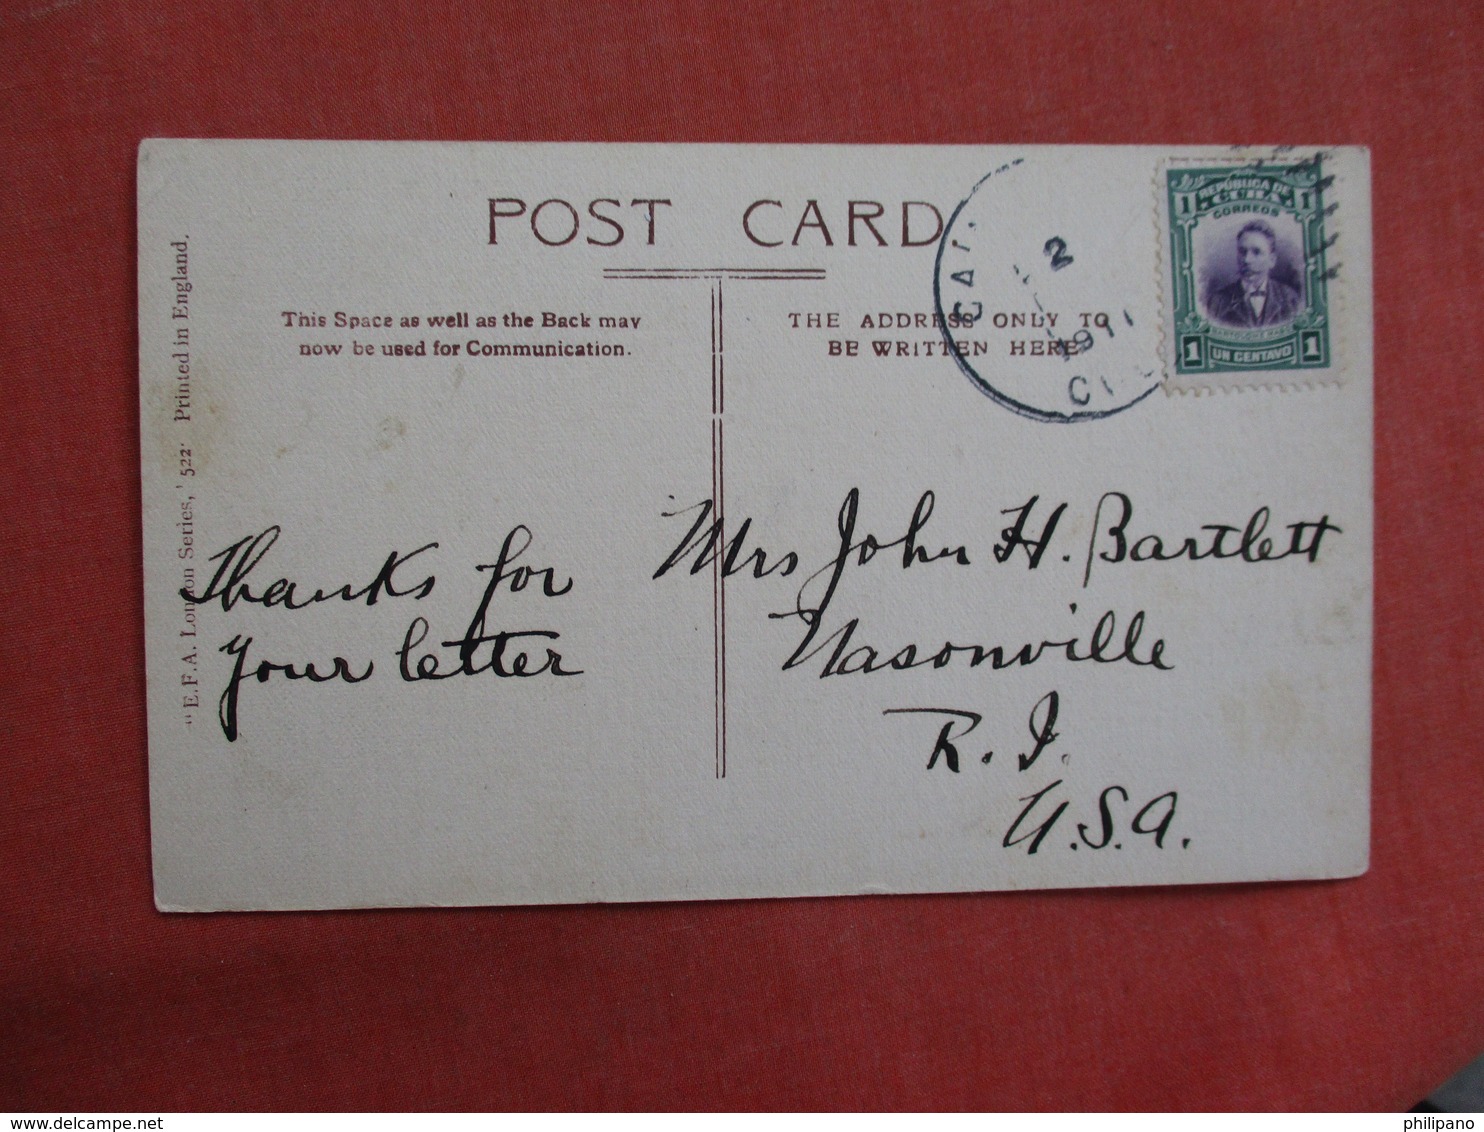 POST CARD
This Space as well as the Back may
now be used for Communication.
THE ADDRESS ONLY TO
BE WRITTEN HERE
"E.F.A. London Series,' 522. Printed in England.
2
1911
1 REPUBLICA DE 1
CUBA
CORREOS
1 UN CENTAVO 1
Thanks for
your letter
Mrs John H. Bartlett
Nasonville
R. I.
U.S.A.
delcampe.net
philipano